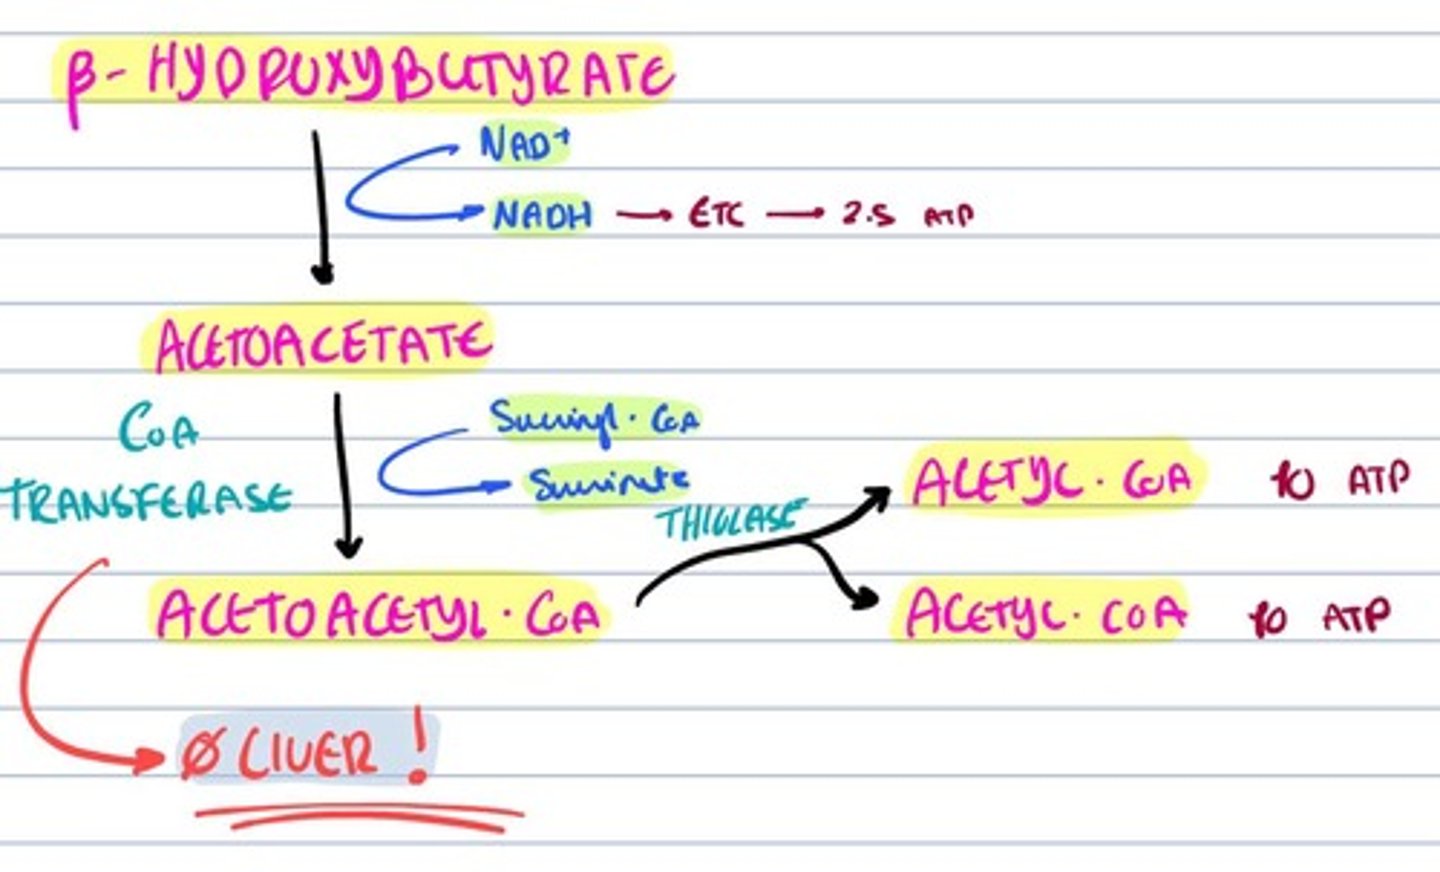 β- HYDROXYBUTYRATE
NAD+
NADH → ETC → 2.5 ATP
ACETOACETATE
CoA
TRANSFERASE
Succinyl · CoA
Succinate
THIOLASE
ACETYL · CoA 10 ATP
ACETOACETYL · CoA
ACETYL · COA 10 ATP
Ø LIVER !